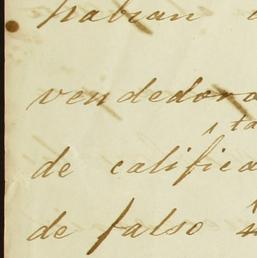 habian
vendedora
ta
de califica
de falso